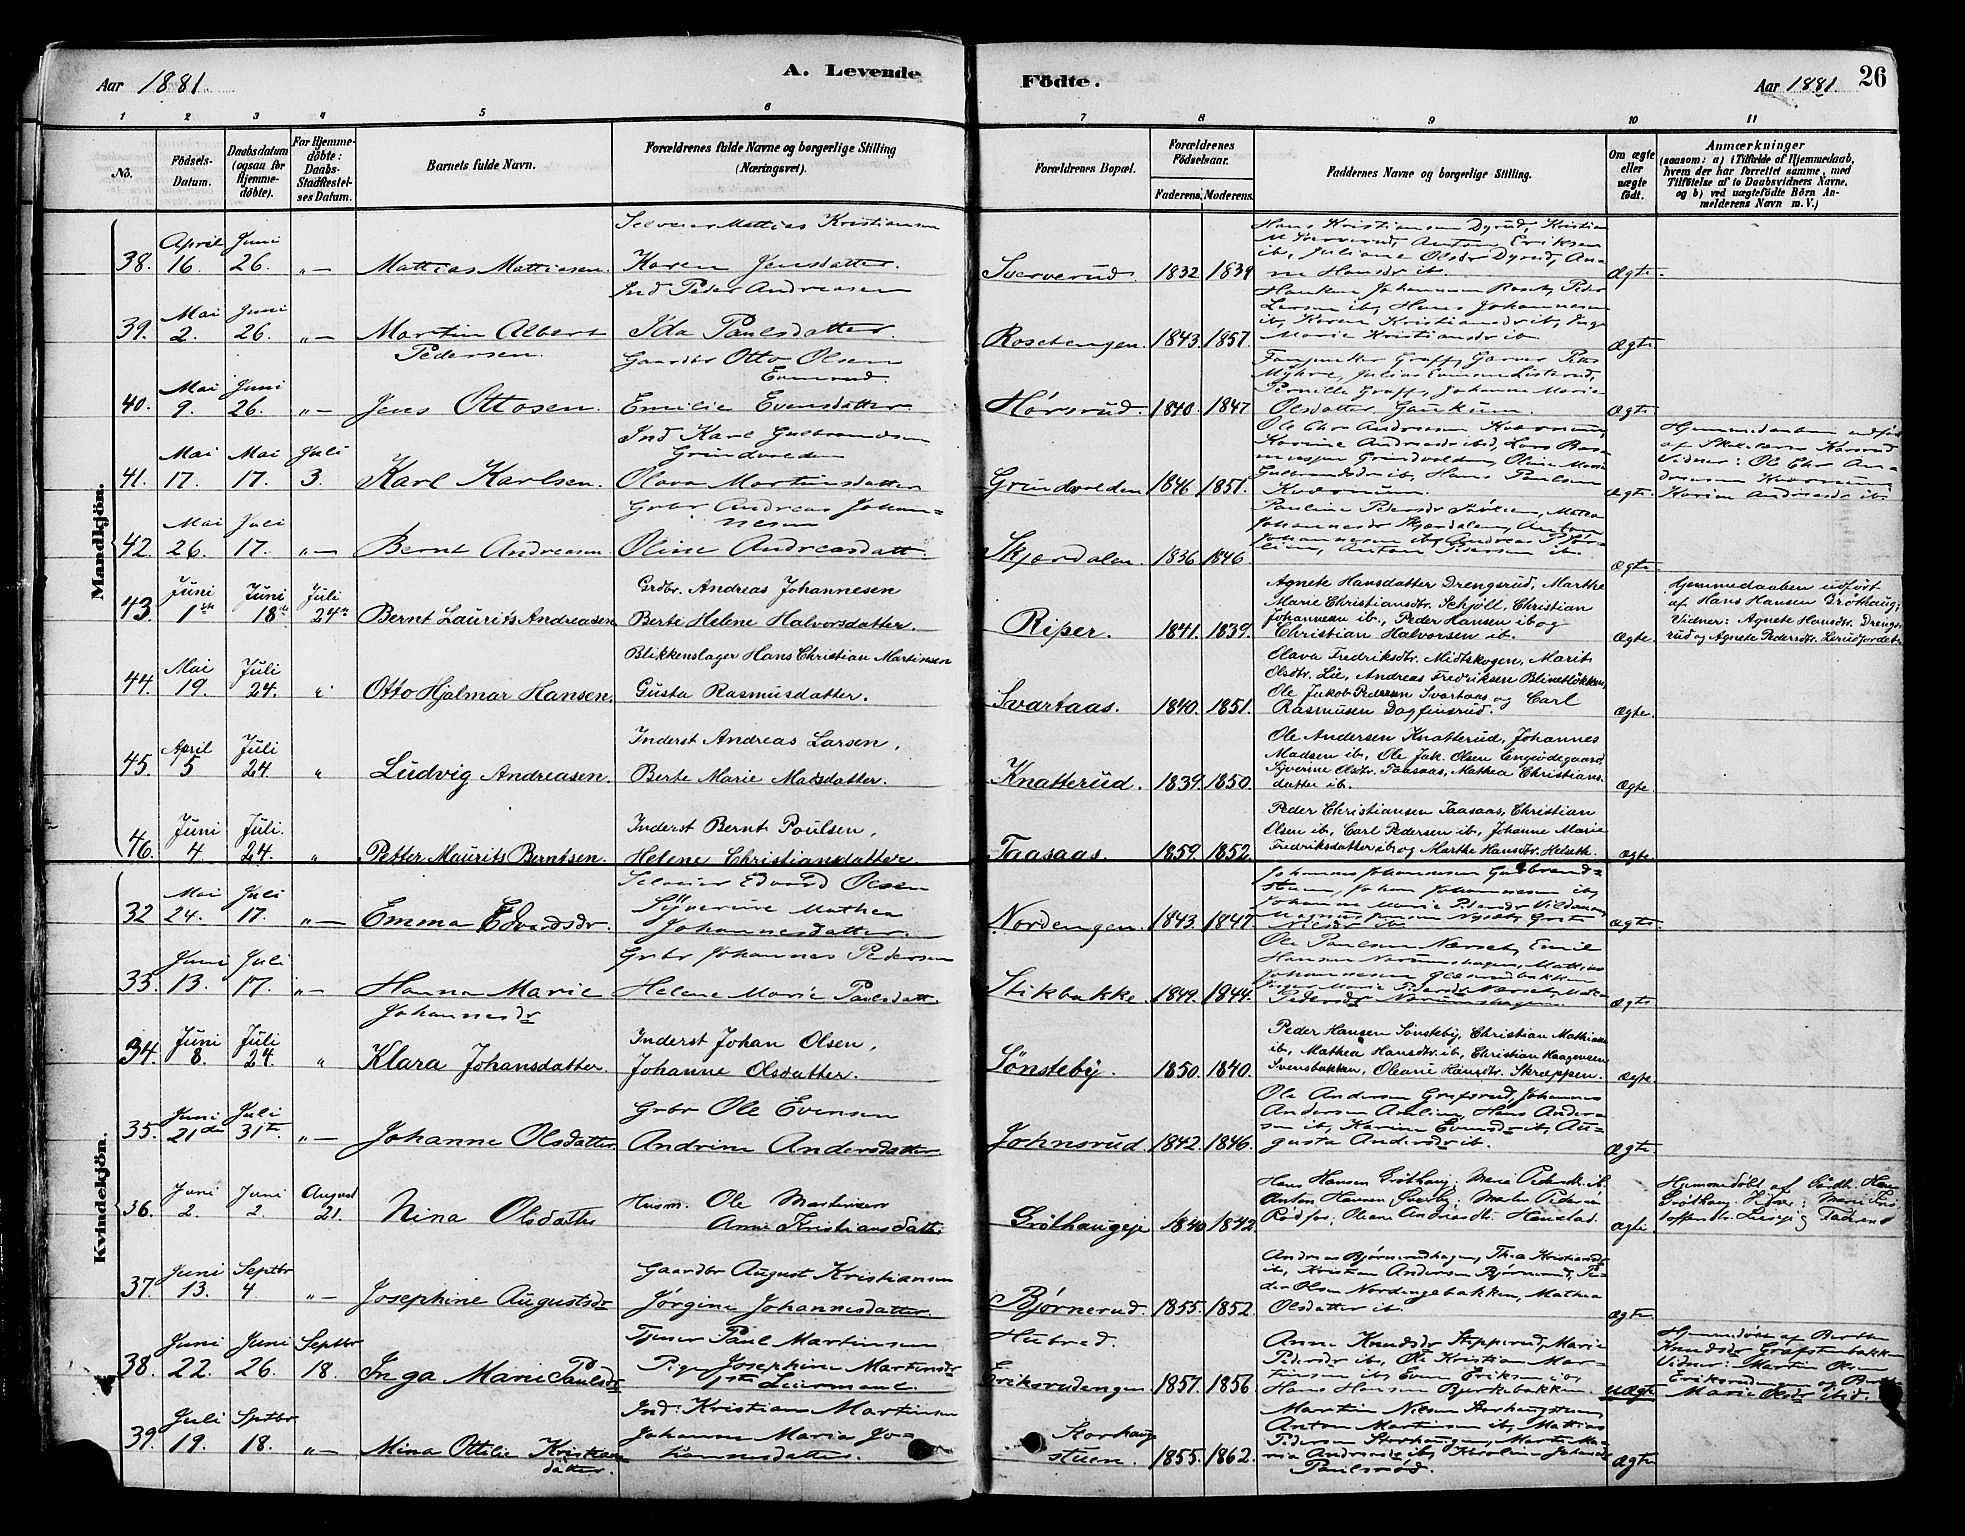 Aar 1881. A. Levende Födte. Aar 1881. 26
1 2 3 4 5 6 7 8 9 10 11
No. Födsels-Datum. Daabsdatum (ogsaa for Hjemmedöbte). For Hjemmedöbte: Daabs-Stadfæstelses Datum. Barnets fulde Navn. Forældrenes fulde Navne og borgerlige Stilling (Næringsvei). Forældrenes Bopæl. Forældrenes Födselsaar. Faderens. Moderens. Faddernes Navne og borgerlige Stilling. Om ægte eller uægte födt. Anmærkninger (saasom: a) i Tilfælde af Hjemmedaab, hvem der har forrettet samme, med Tilföielse af to Daabsvidners Navne. og b) ved uægtefödte Börn Anmelderens Navn m. V.)
Mandkjön.
38. April 16. Juni 26. „— Mattias Mattiesen. Selveier Mattias Kristiansen Karen Jensdatter. Sververud. 1832 1839 Hans Kristiansen Dyrud, Kristian M Sververud, Anton Eriksen ib, Juliane Olsdr Dyrud, Anne Hansdr ib. Ægte.
39. Mai 2. Juni 26. „— Martin Albert Pedersen. Ind Peder Andreasen Ida Paulsdatter. Rosetengen. 1843. 1857. Johannesen Roset, Peder Larsen ib, Hans Johannesen ib, Karen Kristiansdr ib, Inge Marie Kristiansdr ib. Ægte.
40. Mai 9. Juni 26. „— Jens Ottosen. Gaardbr Otto Olsen Evenrud. Emilie Evensdatter. Hörsrud. 1840. 1847 Graff, Garver Myhre, Julius Listerud, Pernille Graff, Johanne Marie Olsdatter Gaukum. Ægte.
41. Mai 17. Mai 17. Juli 3. Karl Karlsen. Ind Karl Gulbrandsen Grindvolden Olava Martinsdatter Grindvolden 1846 1851. Ole Chr Andreasen Kværnum, Karine Andreasdr ibd, Lars Grindvolden, Oline Marie Gulbrandsdr ib, Hans Paulsen Kværnum. Ægte. Hjemmedaaben udført af Skolelærer Korsrud Vidner: Ole Chr Andreasen Kværnum, Karine Andreasdr ib.
42. Mai 26. Juli 17. „— Bernt Andreasen Grbr Andreas Johannesen Oline Andreasdatt. Skjærdalen. 1836 1846. Pauline Pedersdr Johannesdr Skjærdalen, Anton Johannesen ib, Andreas Anton Pedersen ib. Ægte
43. Juni 1ste Juni 18de Juli 24de Bernt Laurits Andreasen Grdbr. Andreas Johannesen Berte Helene Halvorsdatter. Riser. 1841. 1839. Agnete Hansdatter Drengsrud, Marthe Marie Christiansdtr. Schjöll, Christian Johannesen ib., Peder Hansen ib og Christian Halvorsen ib. Ægte Hjemmedaaben udført af Hans Hansen Gröthaug, Vidner: Agnete Hansdtr. Drengsrud og Agnete Pedersdtr.
44. Mai 19. Juli 24. „ Otto Hjalmar Hansen. Blikkenslager Hans Christian Martinsen Gusta Rasmusdatter. Svartaas. 1840. 1851. Olava Fredriksdtr. Midtskogen, Marit Olsdtr. Lie, Andreas Fredriksen Ole Jakob Pedersen Svartaas og Carl Rasmusen Dagfinsrud. Ægte.
45. April 5 Juli 24. „ Ludvig Andreasen. Inderst Andreas Larsen, Berte Marie Matsdatter. Knatterud. 1839. 1850. Ole Andersen Knatterud, Johannes Madsen ib, Ole Jak. Olsen Engödegaard, Syverine Olsdtr. Taasaas, Mathea Christiansdatter ib. Ægte.
46. Juni 4 Juli. 24. „ Petter Maurits Berntsen. Inderst Bernt Poulsen, Helene Christiansdatter Taasaas. 1859. 1852. Peder Christiansen Taasaas, Christian Olsen ib, Carl Pedersen ib, Johanne Marie Fredriksdatter ib og Marthe Hansdtr. Helseth. Ægte.
Kvindekjön.
32 Mai 24. Juli 17. „— Emma Edvardsdr. Selveier Edvard Olsen Syverine Mathea Johannesdatter. Nordengen. 1843. 1847. Johannes Johannesen Johan Johannesen ib, Johanne Marie Pedersdr Magnus Jensen Nysæt, Grete Nilsdr ib. Ægte.
33. Juni 13. Juli 17. „— Hanna Marie Johannesdr Grbr Johannes Pedersen Helene Marie Paulsdatt. Stikbakke. 1849. 1844. Ole Paulsen Næroset, Emil Hansen Mattias Johannesen Inger Marie Pedersdr Næroset, Pedersdr Ægte
34. Juni 8. Juli 24. „ Klara Johansdatter. Inderst Johan Olsen, Johanne Olsdatter. Sönsteby. 1850. 1840. Peder Hansen Sönsteby, Christian Mathiasen ib., Mathea Hansdtr. ib., Christian Haagensen Svensbakken, Oleane Hansdtr. Skræppen. Ægte.
35. Juni 21de Juli 31te „— Johanne Olsdatter. Grbr Ole Evensen Andrine Andersdatter Johnsrud 1842. 1846. Ole Andersen Johannes Andersen Hans Andersen ib, Karine Evensdr ib, Augusta Andersdr ib. Ægte
36. Juni 2. Juni 2. August 21. Nina Olsdatter Husm. Ole Martinsen Anne Kristiansdatter Gröthaugeje 1840 1842. Hans Hansen Gröthaug, Marie Pedersdr. ib Anton Hansen Oleane Andreasdtr. Ægte Hjemmedöbt af Hans Gröthaug Vidner:
37. Juni 13. Septbr 4 „— Josephine Augustsdr Gaardbr August Kristiansen Jörgine Johannesdatter. Björnerud. 1855. 1852. Andreas Björnerudhagen, Thea Kristiansdr ib, Kristian Andersen Björnerud, Peder Olsen Nordengbakken, Mathea Olsdatter ib. Ægte
38. Juni 22. Juni 26. Septbr 18. Inga Marie Paulsdr Tjener Paul Martinsen Pige Josephine Martinsdr 1ste Leiermaal. Eriksrudengen 1857. 1856 Anne Knudsdr Stepperud, Marie Pedersdr ib, Ole Kristian Martinsen ib, Even Eriksen ib, Hans Hansen Bjerkebakken. uægte Hjemmedöbt af Berthe Knudsdr Vidner: Martin Olsen Eriksrudengen og Marie Olsdr ibid.
39. Juli 19. Sptbr 18. „— Mina Ottilie Kristiansdatter. Ind. Kristian Martinsen Johanne Marie Johannesdatter. Storhaugstuen. 1855. 1862. Martin Nilsen Storhaugstuen, Anton Martinsen ib, Mattias Pedersen Storhaugen, Marte Maria Andreasdr ib, Karoline Johansdr Paulsrød. Ægte